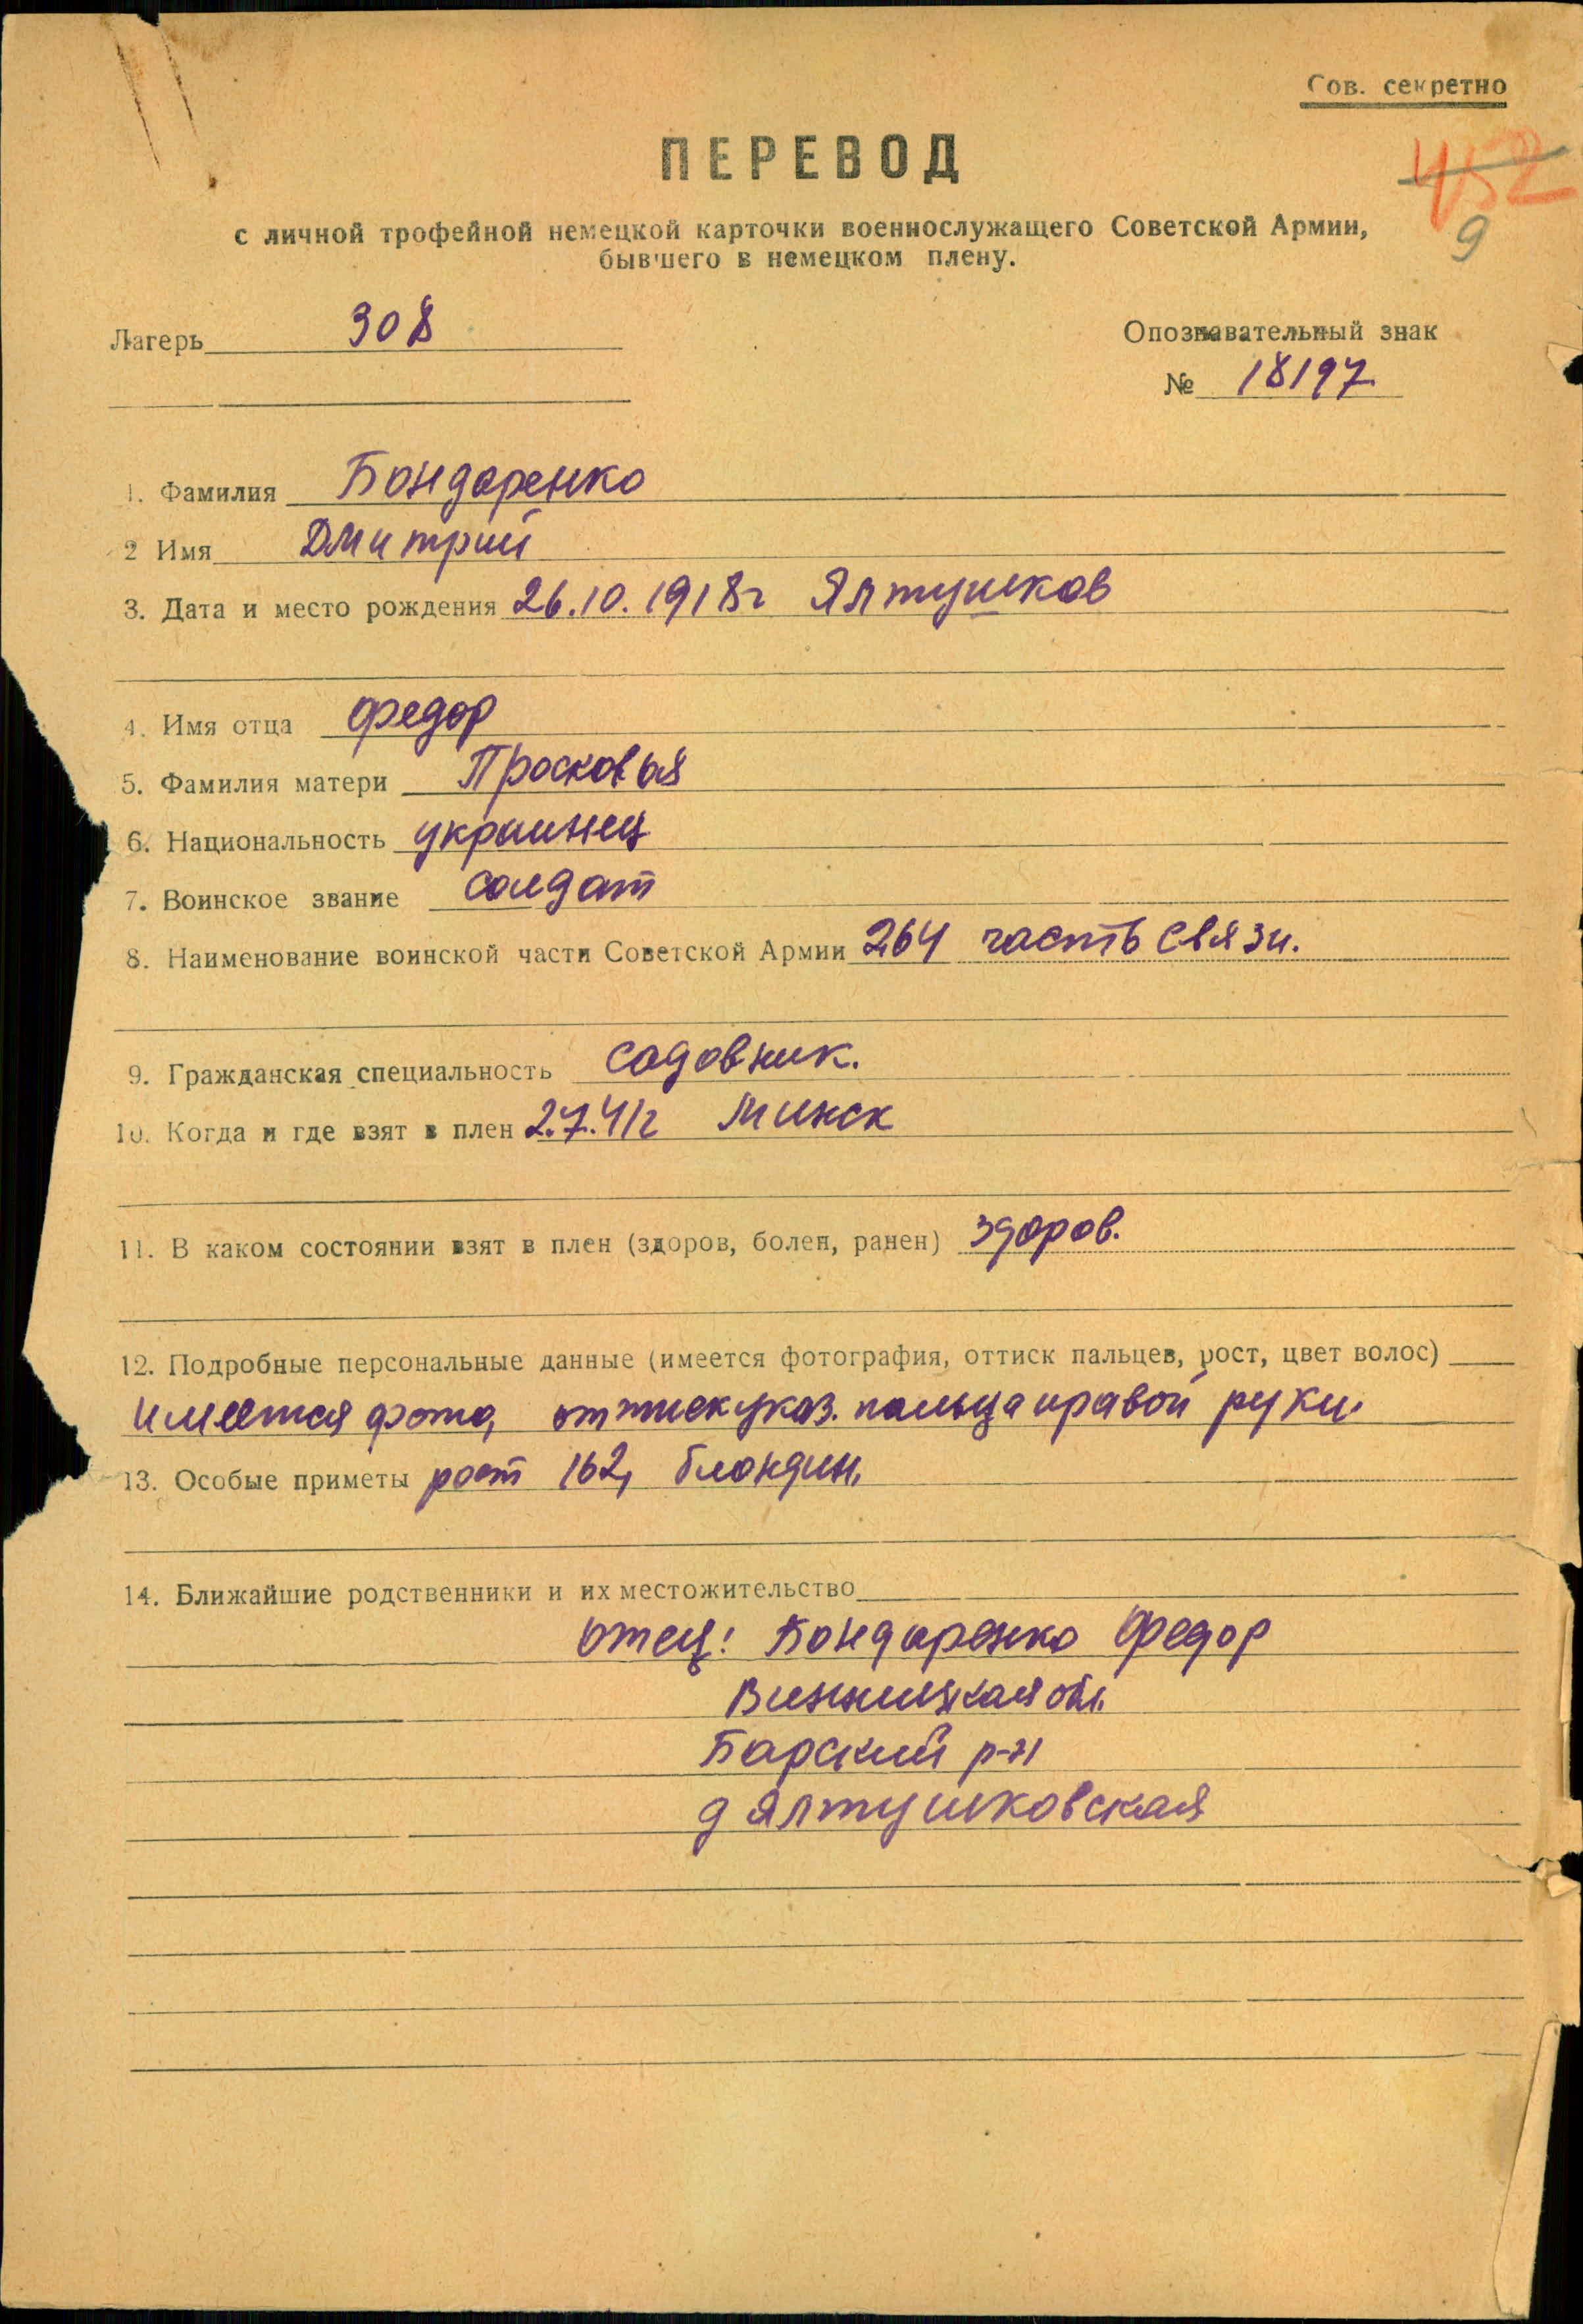 Сов. секретно
ПЕРЕВОД
452
9
с личной трофейной немецкой карточки военнослужащего Советской Армии,
бывшего в немецком плену.
Лагерь 308
Опознавательный знак
№ 18197
1. Фамилия Бондаренко
2 Имя Дмитрий
3. Дата и место рождения 26.10.1918г Ялтушков
4. Имя отца Федор
5. Фамилия матери Просковья
6. Национальность украинец
7. Воинское звание солдат
8. Наименование воинской части Советской Армии 264 часть связи.
9. Гражданская специальность садовник.
10. Когда и где взят в плен 2.7.41г Минск
11. В каком состоянии взят в плен (здоров, болен, ранен) здоров.
12. Подробные персональные данные (имеется фотография, оттиск пальцев, рост, цвет волос)
имеется фото, оттиск указ. пальца правой руки.
13. Особые приметы рост 162, блондин,
14. Ближайшие родственники и их местожительство
отец: Бондаренко Федор
Винницкая обл.
Барский р-н
д Ялтушковская